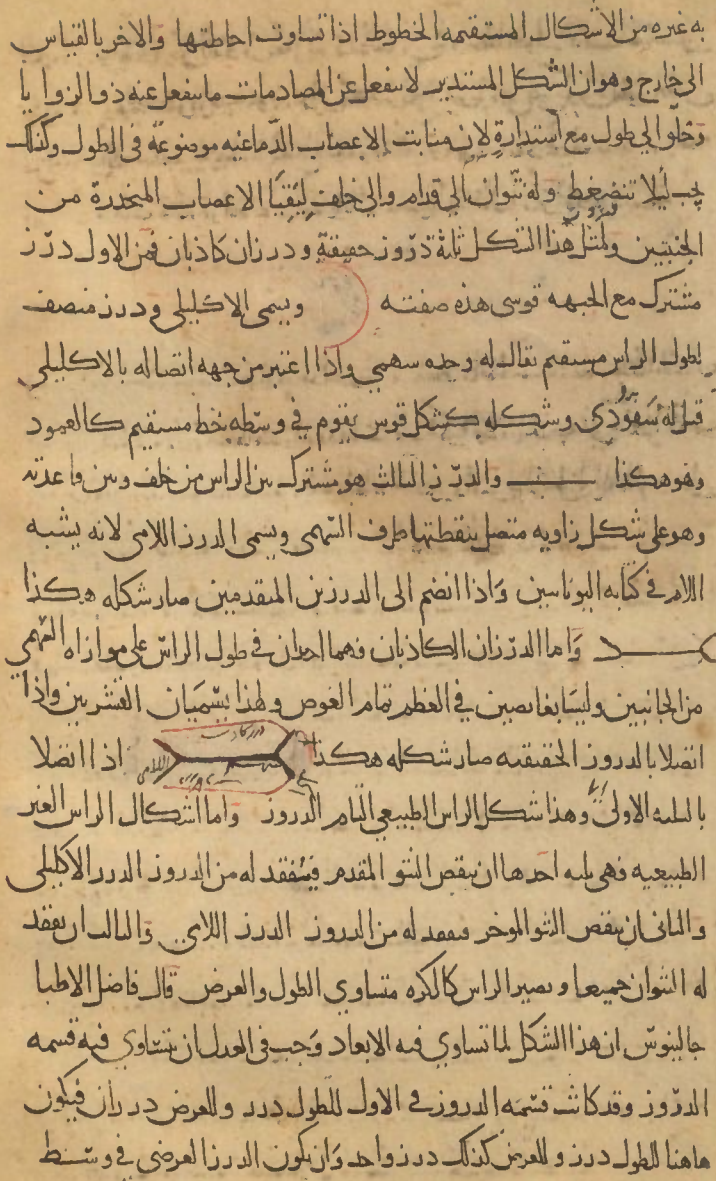 به غيره من الاشكال المستقيمه الخطوط اذا تساوت احاطتها والاخر بالقياس
الى خارج وهو ان الشكل المستدير لا ينفعل عن المصادمات ما ينفعل عنه ذو الزوايا
وخلق الى طول مع استدارة لان منابت الاعصاب الدماغيه موضوعة في الطول وكذلك
يجب ليلا تنضغط وله نتوان الى قدام والى خلف ليقيا الاعصاب المنحدرة من
الجنبتين ولمثل هذا الشكل ثلثة دروز حقيقة ودرزان كاذبان فمن الاول درز
مشترك مع الجبهه قوسى هذه صفته ويسمى الاكليلي ودرز منصف
لطول الراس مستقيم يقال له وحده سهمي واذا اعتبر من جهه اتصاله بالاكليلي
قيل له سفودى وشكله كشكل قوس يقوم في وسطه خط مستقيم كالعمود
وهو هكذا والدرز الثالث هو مشترك بين الراس من خلف وبين قاعدته
وهو على شكل زاويه متصل بنقطتها طرف السهمى ويسمى الدرز اللامى لانه يشبه
اللام في كتابه اليونانيين واذا انضم الى الدرزين المتقدمين صار شكله هكذا
واما الدرزان الكاذبان فهما اخذان في طول الراس على موازاه السهمي
من الجانبين وليسا بغائصين في العظم تمام الغوص ولهذا يسميان القشريين واذا
اتصلا بالدروز الحقيقيه صار شكله هكذا اذا اتصلا
بالثلثه الاولى وهذا شكل الراس الطبيعي التام الدروز واما اشكال الراس الغير
الطبيعيه فهي ثلثه احدها ان ينقص النتو المقدم فيفقد له من الدروز الدرز الاكليلي
والثاني ان ينقص النتو الموخر فيفقد له من الدروز الدرز اللامي والثالث ان يفقد
له النتوان جميعا ويصير الراس كالكره متساوي الطول والعرض قال فاضل الاطبا
جالينوس ان هذا الشكل لما تساوي فيه الابعاد وجب في العدل ان يتساوي فيه قسمه
الدروز وقد كانت قسمه الدروز في الاول للطول درز وللعرض درزان فيكون
هاهنا للطول درز وللعرض كذلك درز واحد وان يكون الدرز العرضي في وسط